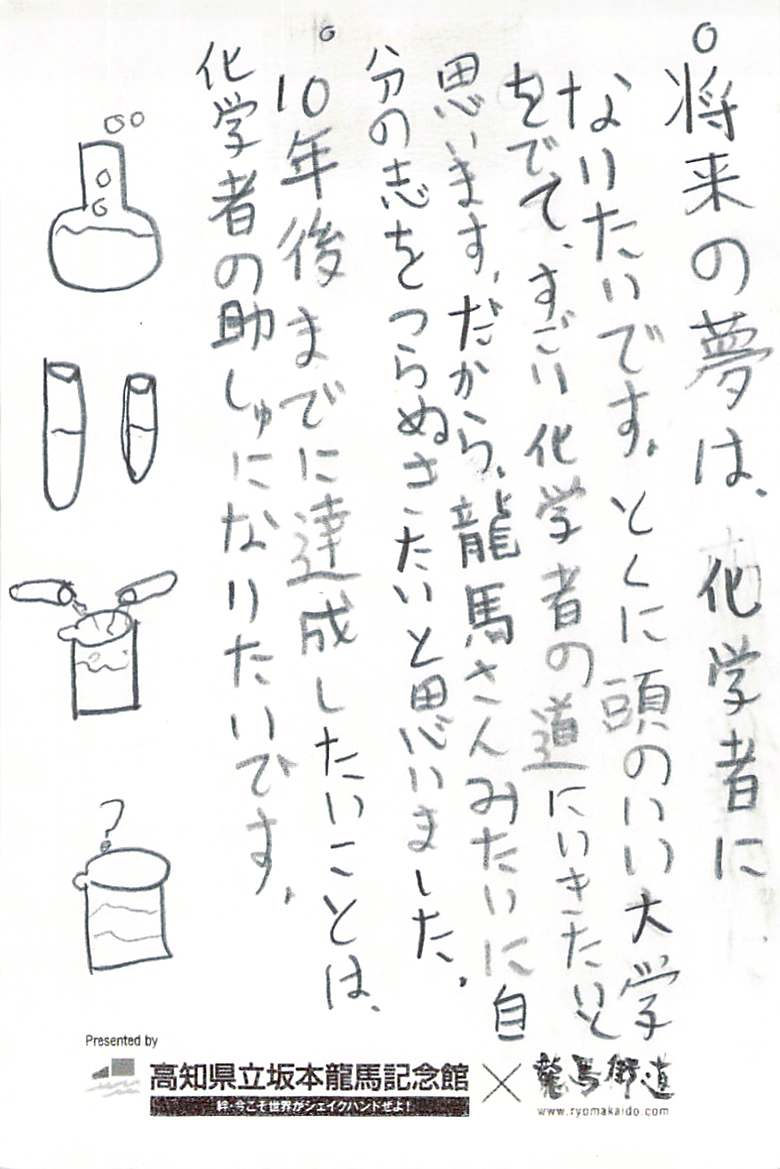 ○将来の夢は、化学者に
なりたいです。とくに頭のいい大学
をでて、すごい化学者の道にいきたいと
思います。だから、龍馬さんみたいに自
分の志をつらぬきたいと思いました。
○10年後までに達成したいことは、
化学者の助しゅになりたいです。
?
Presented by
高知県立坂本龍馬記念館×龍馬街道
絆・今こそ世界がシェイクハンドぜよ!
www.ryomakaido.com